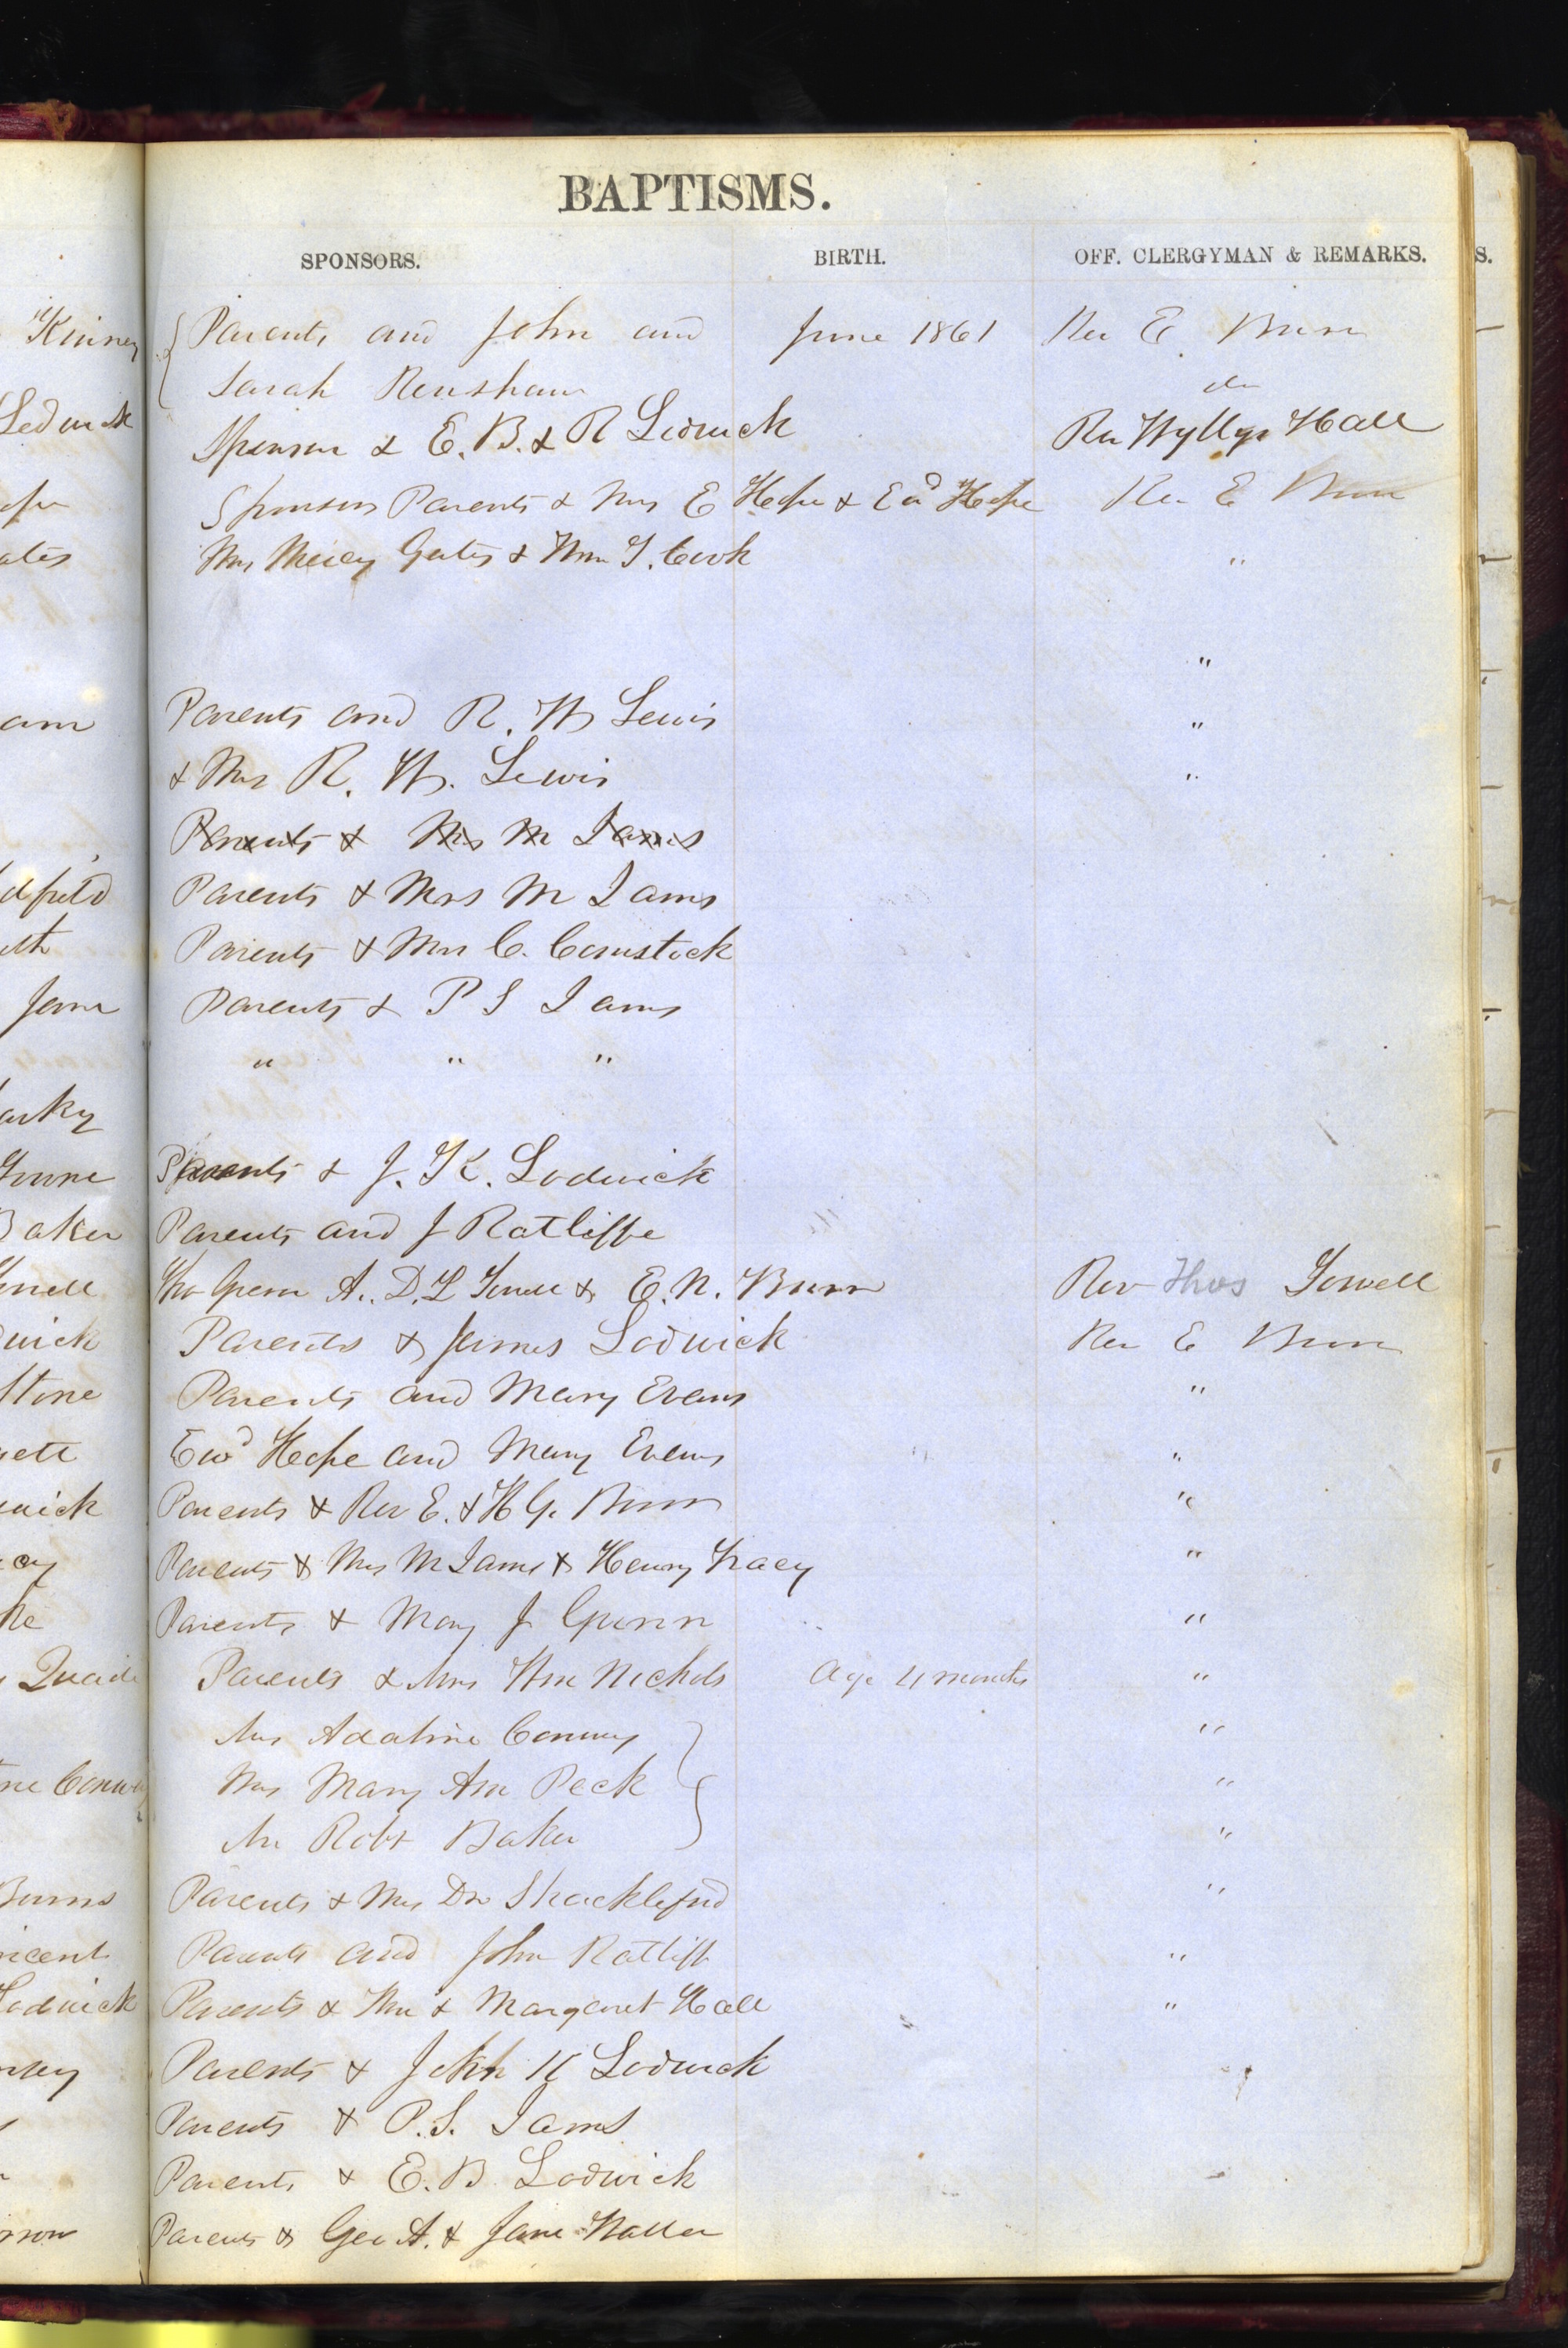 BAPTISMS.
SPONSORS. BIRTH. OFF. CLERGYMAN & REMARKS. S.
Kinney Parents and John and June 1861 Rev E. Burr
Sarah Renshaw do
Lodwick Sponsors & E. B. & R Lodwick Rev Wyllys Hall
Sponsors Parents & Mrs E Hope & Ed Hope Rev E Burr
ates Mrs Mercy Gates & Wm T. Cook "
"
am Parents and R. W Lewis "
& Mrs R. W. Lewis "
Parents & Mrs M Iams
dfield Parents & Mrs M Iams
Parents & Mrs C. Comstock
Jane Parents & P S Iams
" " "
arky
Towne Parents & J. K. Lodwick
Baker Parents and J Ratliffe
A. D. L Towell & E. N. Burr Rev Thos Towell
wick Parents & James Lodwick Rev E Burr
Stone Parents and Mary Evans "
Ewd Hope and Mary Evans "
wick Parents & Rev E. & H G. Burr "
Parents & Mrs M Iams & Henry Tracy "
Parents & Mary J Gunn "
Quade Parents & Mrs Wm Nichols Age 4 months "
Mrs Adaline Conway "
ne Conway Mrs Mary Ann Peck "
Mr Robt Baker "
Burns Parents & Mrs Dr Shackleford "
ncent Parents and John Ratliff "
Lodwick Parents & Wm & Margaret Hall "
Parents & John K Lodwick
Parents & P. S. Iams
Parents & E. B Lodwick
Parents & Geo A. & Jane Waller